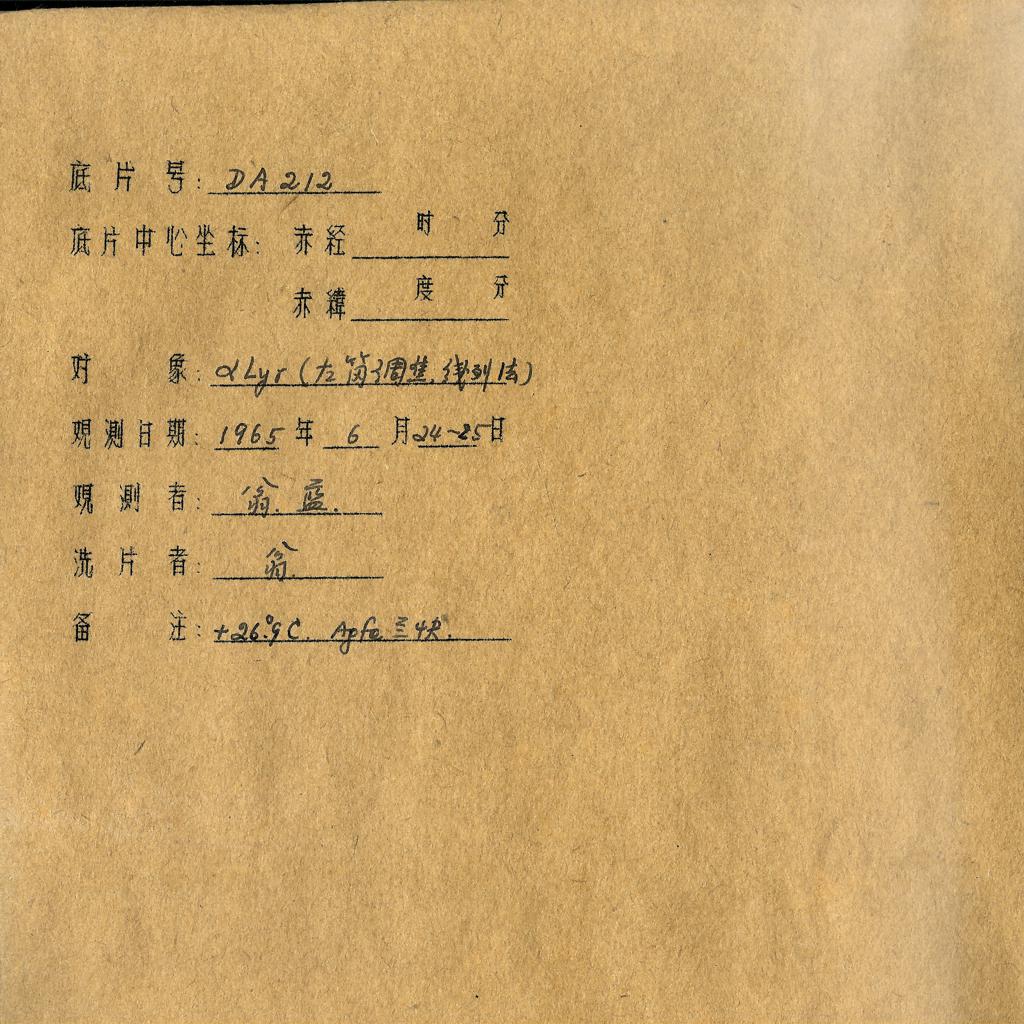 底片号: DA212
时 分
底片中心坐标: 赤经
度 分
赤緯
对象: αLyr (左筒调焦.线列法)
观测日期: 1965年 6 月24-25日
观测者: 翁. 蓝.
洗片者: 翁.
备注: +26°.9C. Agfa 三块.